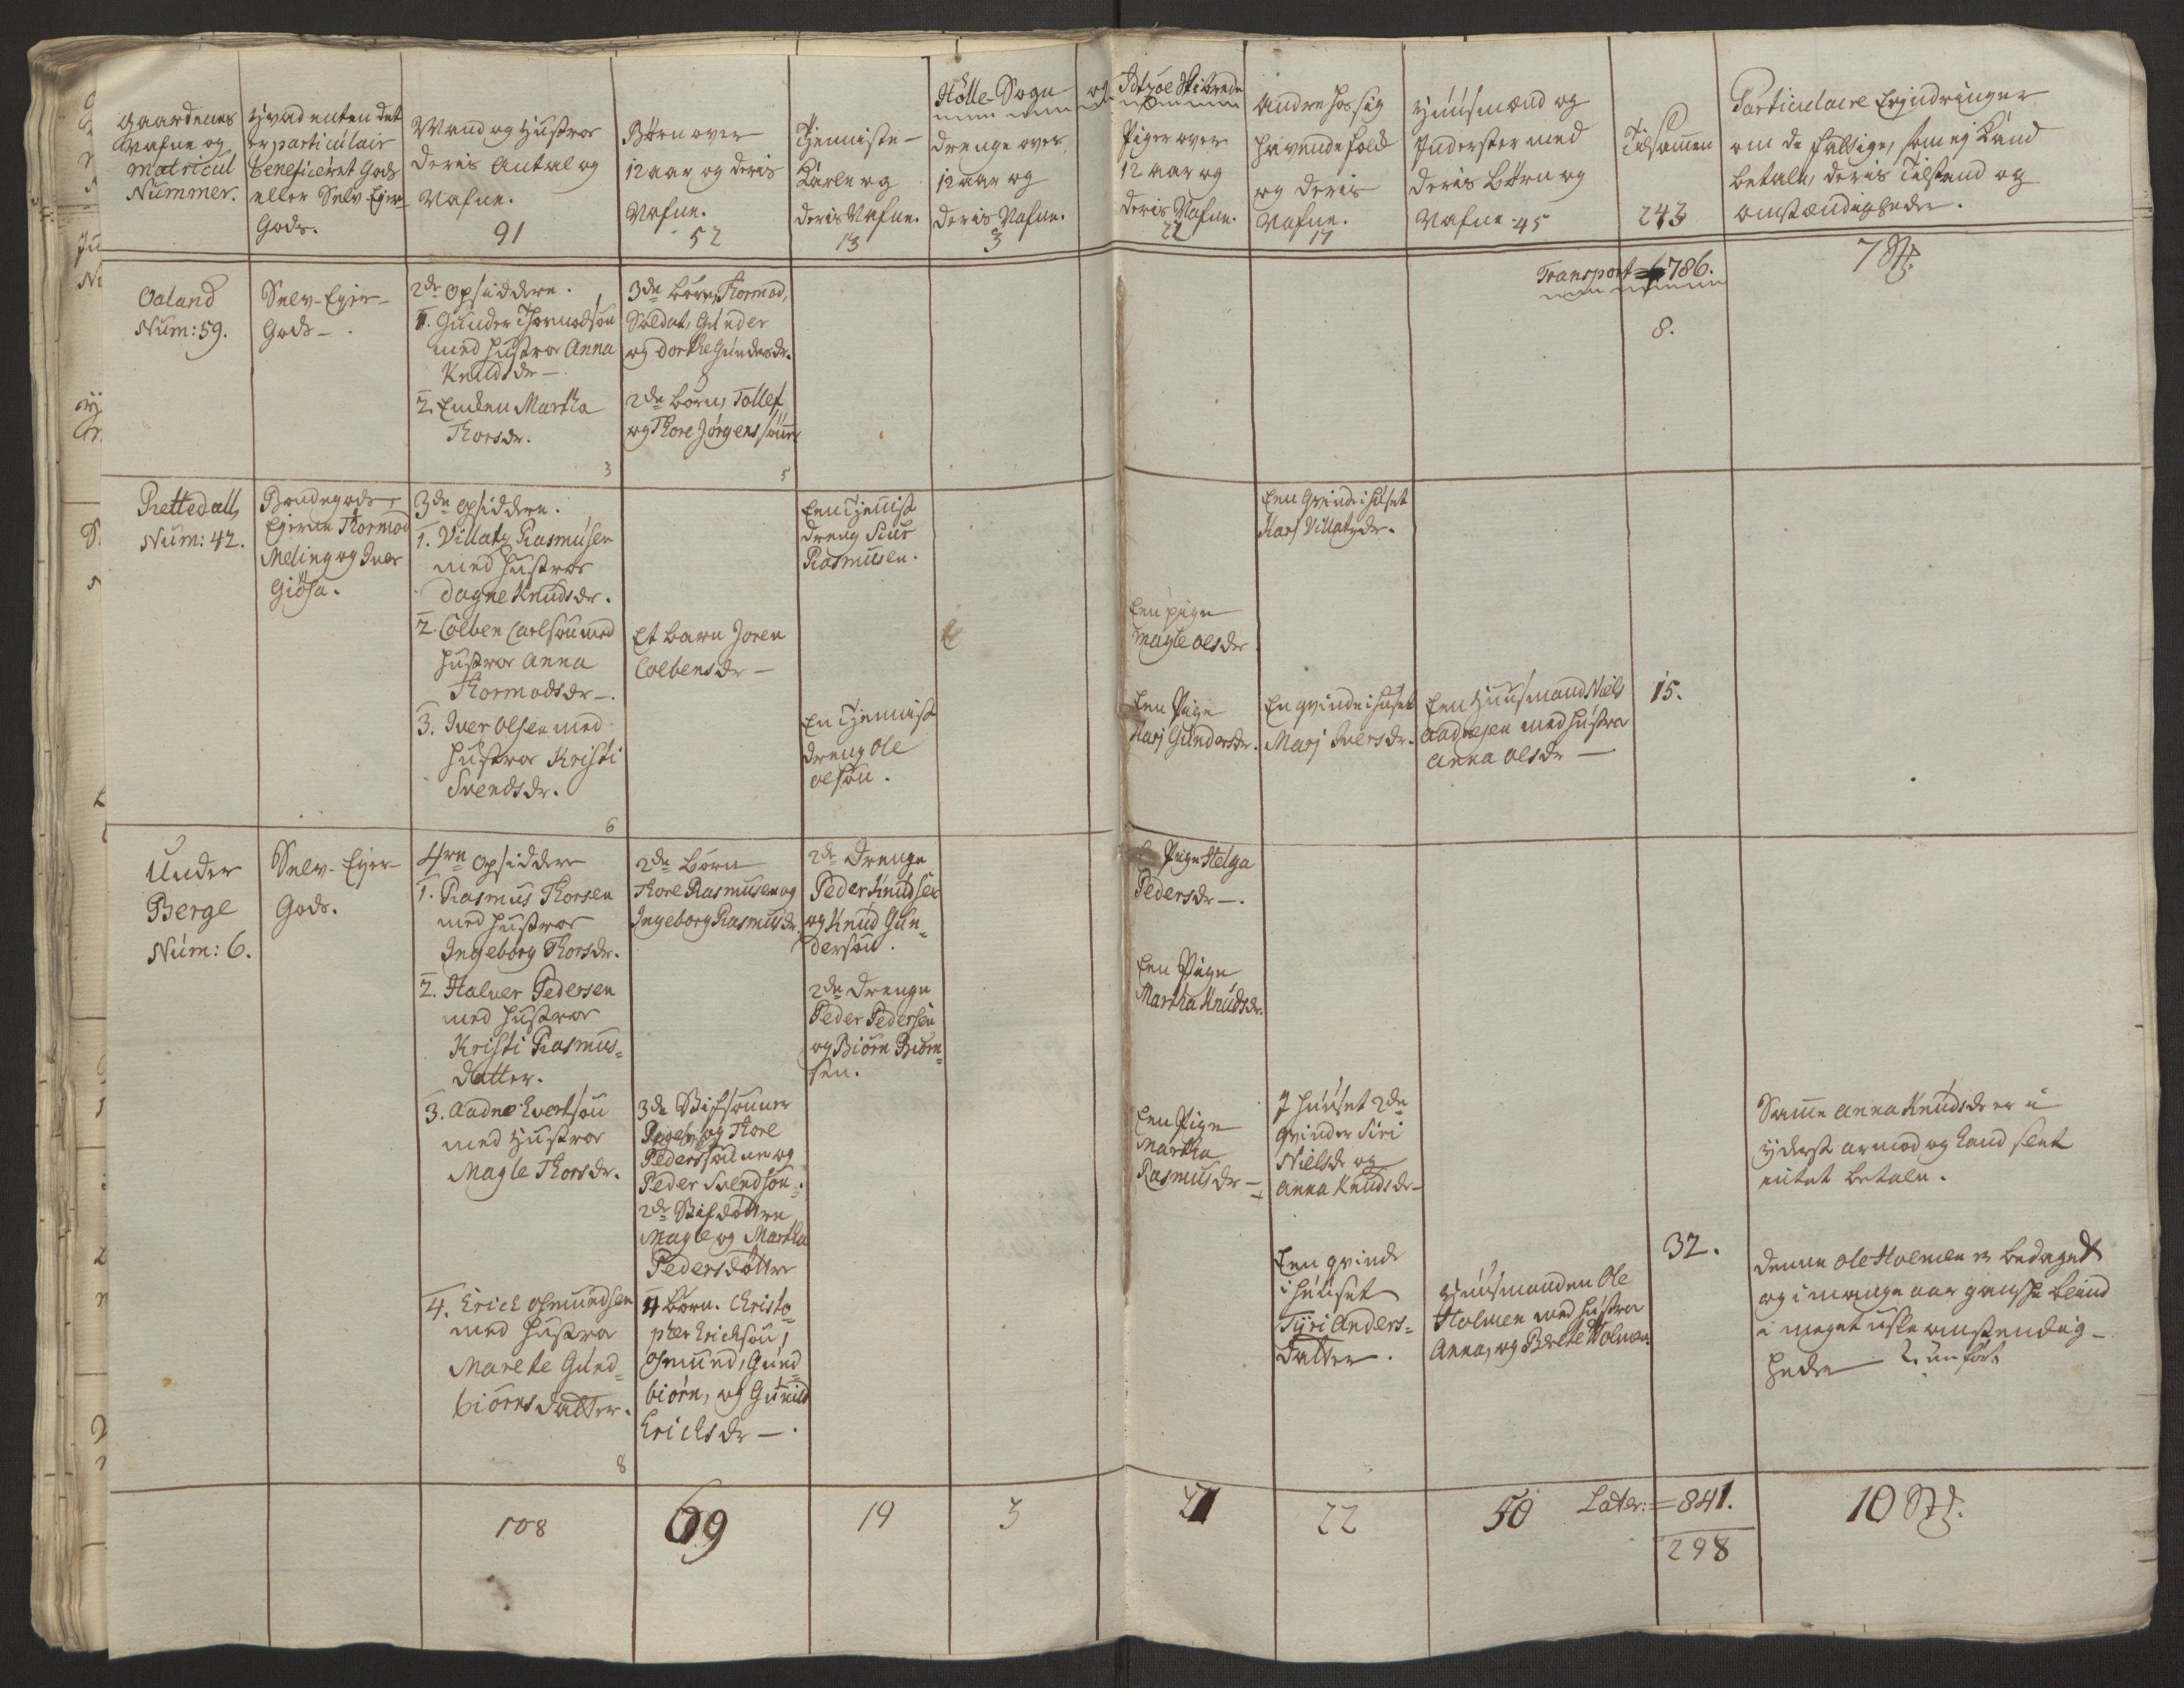 Hölle-Sogn og Idtzöe Skibrede
Gaardenes
Nafne og
Matricul
Nummer.
Hvad enten det
er particulair
beneficeret Gods
eller Selv-Ejer
Gods.
Mand og Hustroe
deris Antal og
Nafne.
91
Börn over
12 aar og deris
Nafne.
52
Tjenniste-
Karle og
deris Nafne.
13
drenge over
12 aar og
deris Nafne.
3
Piger over
12 aar og
deris Nafne.
22
Andre hos sig
havende folck
og deris
Nafne.
17
Huusmænd og
Inderster med
deris börn og
Nafne 45
Tilsammen
243
Particulaire Erindringer
om de fattige, som ej kand
betale, deris Tilstand og
omstændigheder.
Transport = 786.
7 St.
Oaland
Num: 59.
Selv-Ejer-
Gods.
2de opsiddere.
1. Gunder Thormodsön
med hustroe Anna
Knudsdr.
2. Encken Martha
Thorsdr.
3
3de börn, Thormod,
Soldat, Gunder
og dorthe Gundersdr.
2de börn, Tollef
og Thore Jörgens sönner
5
8.
Rettedall,
Num: 42.
Bondegods,
Ejerne Thormod
Meling og Iver
Giösa.
3de opsiddere.
1. Villatz Rasmusen
med hustroe
dagne Knudsdr.
2. Colben Carlsön med
hustroe Anna
Thormodsdr.
3. Iver Olsen med
hustroe Kristi
Svendsdr.
6
Et barn Joren
Colbensdr
Een Tjennist
dreng Siur
Rasmusen.
En Tjennist
dreng Ole
olsön.
Een pige
Magle olsdr
Een Pige
Karj Gundersdr.
Een qvinde i huset
Karj Villatzdr.
En qvinde i huset
Marj Iversdr.
Een Huusmand Niels
Aadnesen med hustroe
Anna olsdr
15.
Under
Berge
Num: 6.
Selv-Ejer-
Gods.
4re opsiddere
1. Rasmus Thorsen
med hustroe
Ingeborg Thorsdr.
2. Halver Pedersen
med hustroe
Kristi Rasmus-
datter.
3. Aadne Evertsön
med Hustroe
Magle Thorsdr.
4. Erich Osmundsen
med hustroe
Marete Gund-
biörnsdatter.
8
2de börn
Thore Rasmusen og
Ingeborg Rasmusdr.
3de Stifsönner
og Thore
Pederssönner og
Peder Svendsön.
2de Stifdöttre
Magle og Martha
Pedersdöttre
4 börn. Christo-
pher Erichsön,
Osmund, Gund-
biörn, og Gunild
Erichsdr
2de drenge
Peder Knudsen
og Knud Gun-
dersön.
2de drenge
Peder Pedersen
og Biörn Biörn-
sen.
Pige Helga
Pedersdr.
Een Pige
Martha Knudsdr.
Een Pige
Martha
Rasmusdr
I huuset 2de
qvinder Siri
Nielsdr og
Anna Knudsdr
Een qvinde
i huuset
Tyri Anders-
datter.
Huusmanden Ole
Holmen med hustroe
Anna, og Berete Holmen.
32.
Samme Anna Knudsdr er i
yderst armod og kand slet
intet betale.
Denne Ole Holmen er bedaget
og i mange aar gansche blind
i meget usle omstændig-
heder
108
69
19
3
22
50
Later: = 841.
298
10 St.